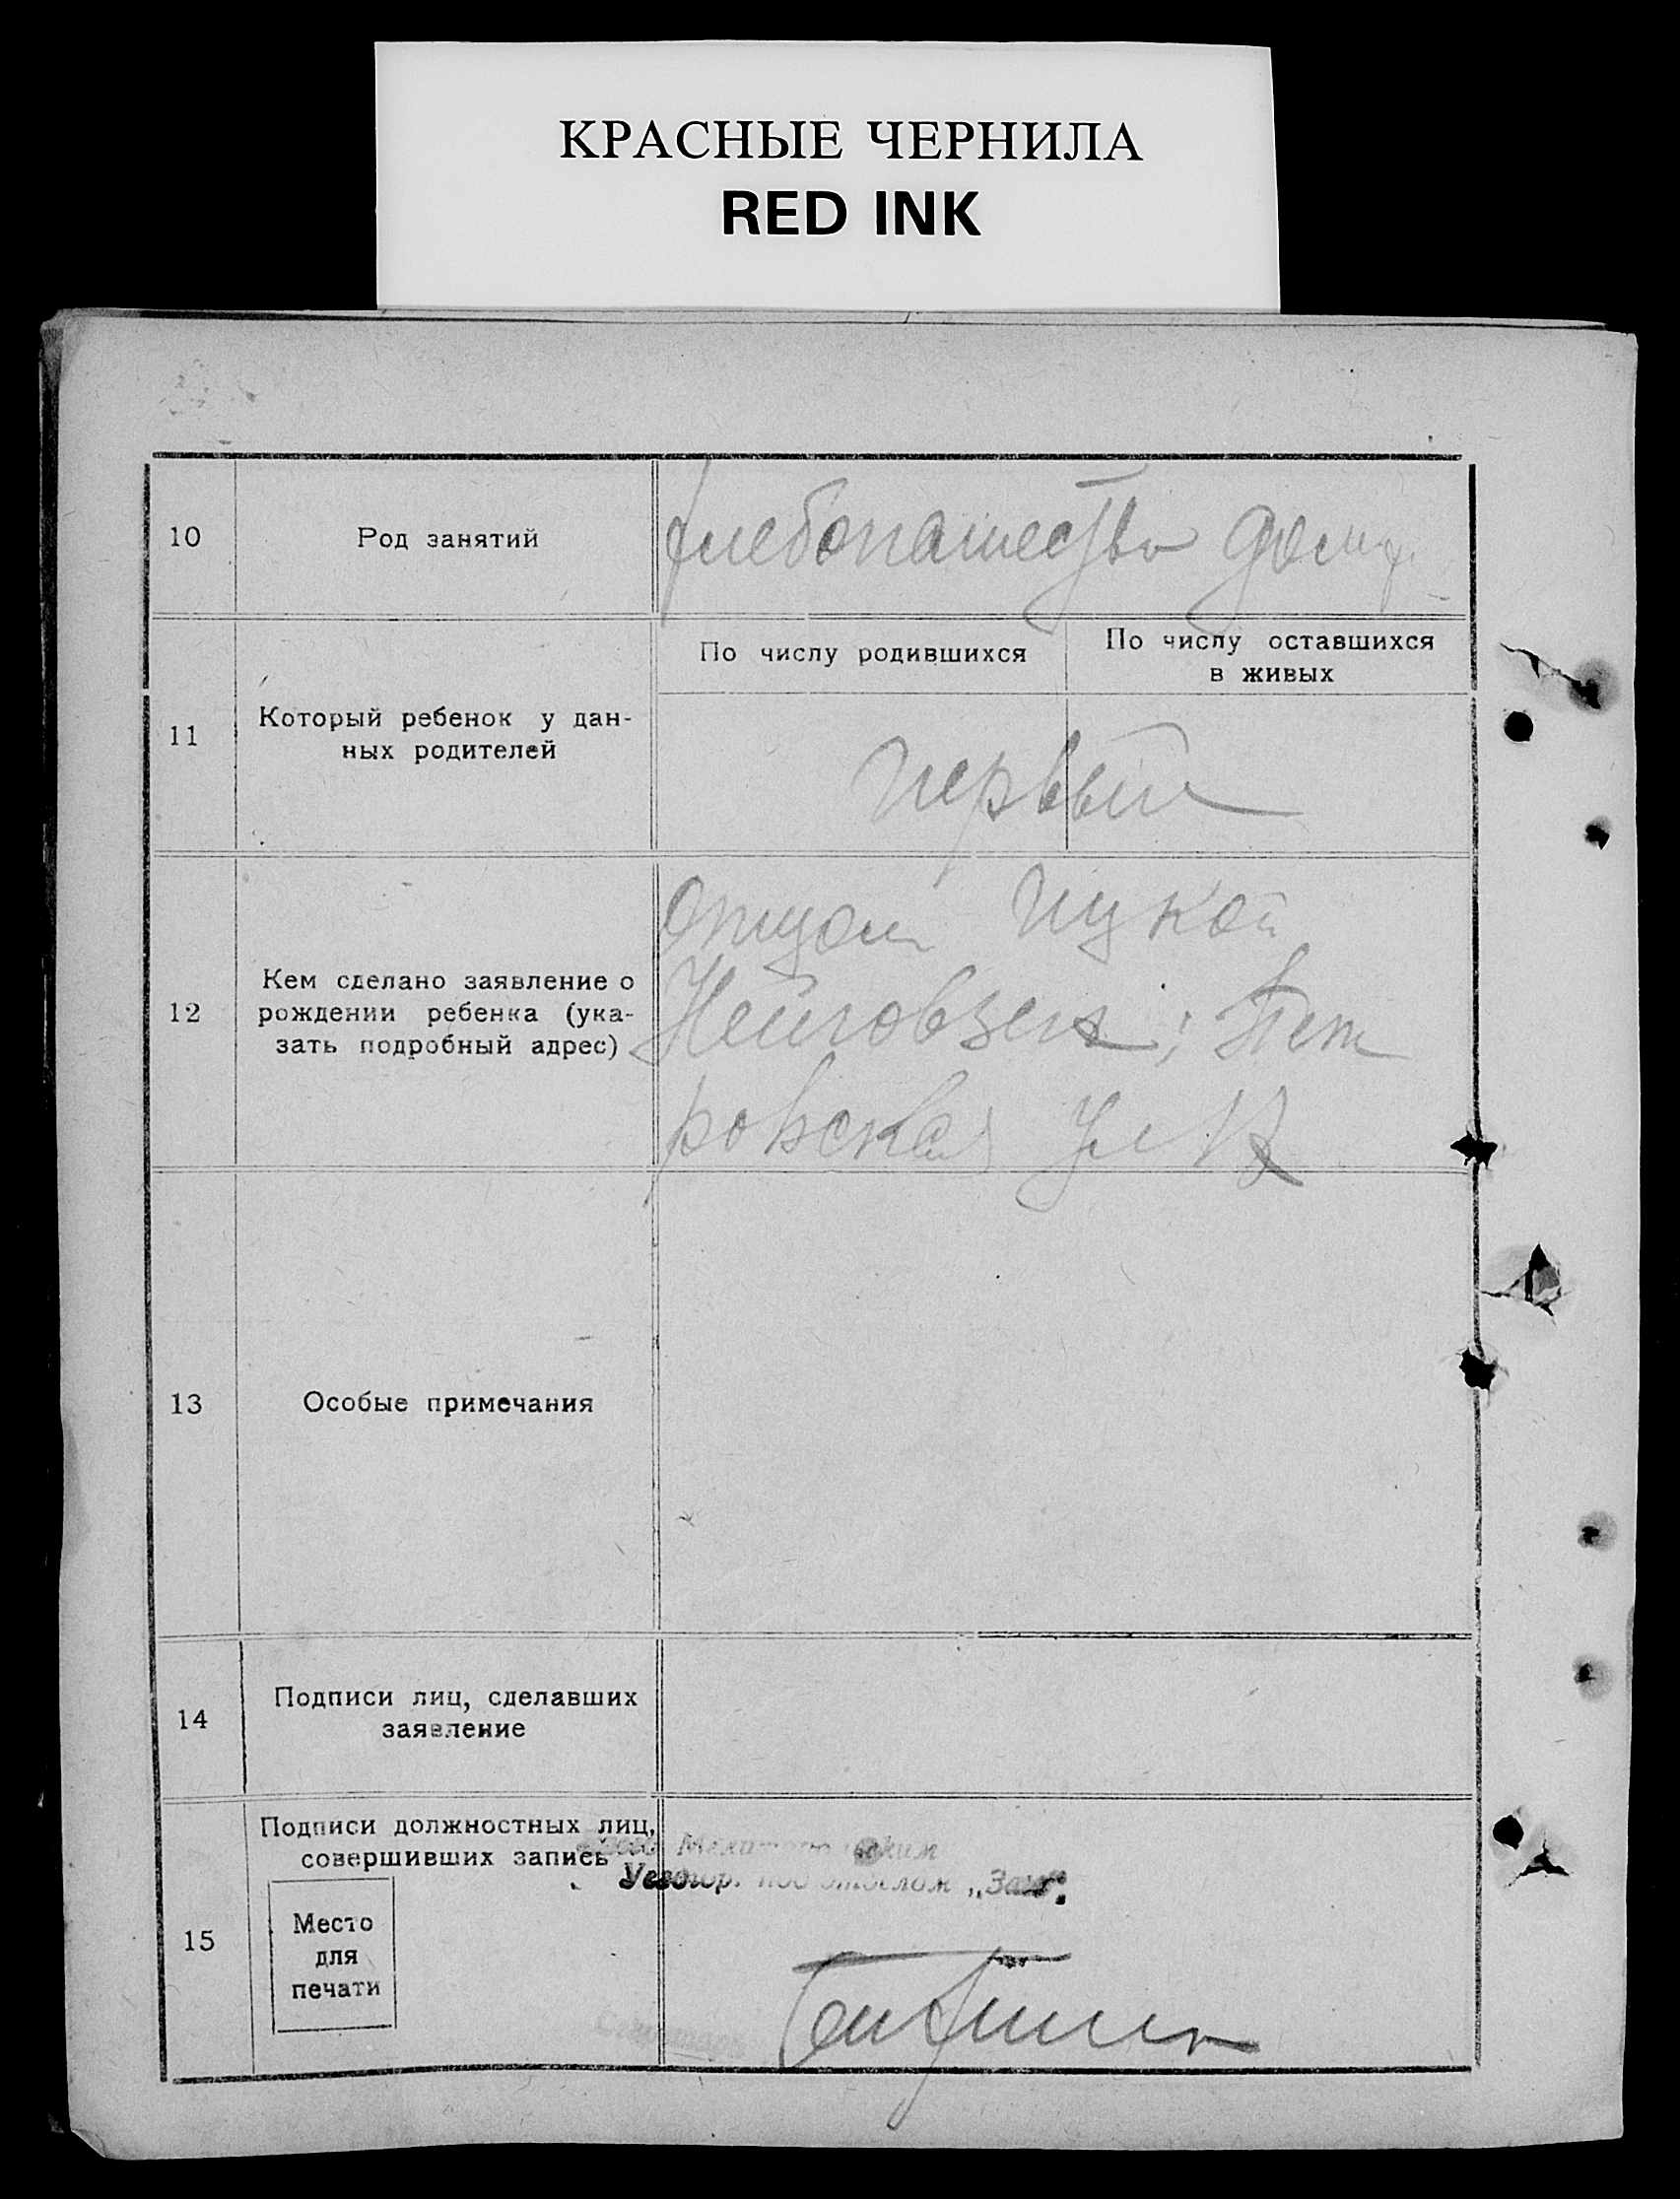 КРАСНЫЕ ЧЕРНИЛА
RED INK
10
Род занятий
хлебопашество
11
Который ребенок у дан-
ных родителей
По числу родившихся
По числу оставшихся
в живых
первый
12
Кем сделано заявление о
рождении ребенка (ука-
зать подробный адрес)
отцом
Пет
ровская ул
13
Особые примечания
14
Подписи лиц, сделавших
заявление
15
Подписи должностных лиц,
совершивших запись
Место
для
печати